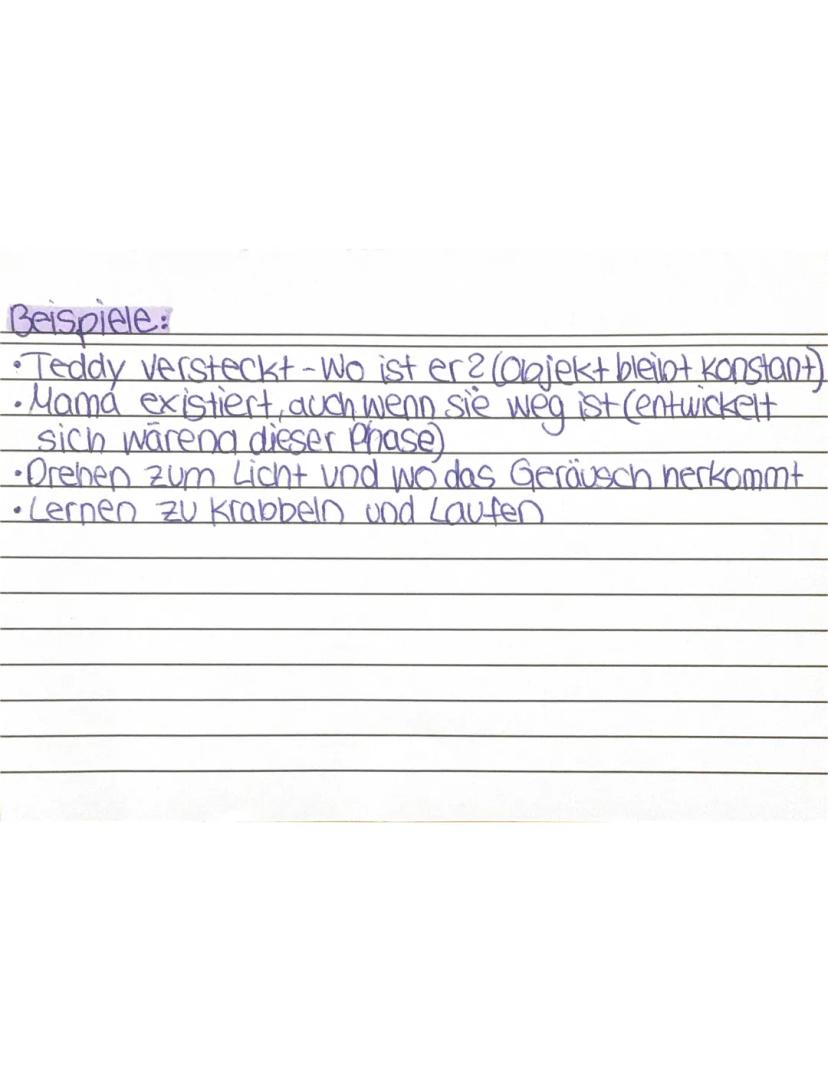 Beispiele:
• Teddy versteckt - Wo ist er? (Objekt bleibt konstant)
• Mama existiert, auch wenn sie weg ist (entwickelt
sich wärend dieser Phase)
• Drehen zum Licht und wo das Geräusch herkommt
• Lernen zu Krabbeln und Laufen